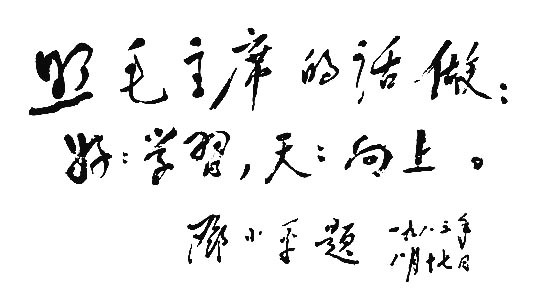 照毛主席的话做:
好:学习,天:向上。
邓小平题
一九八三年
八月十七日